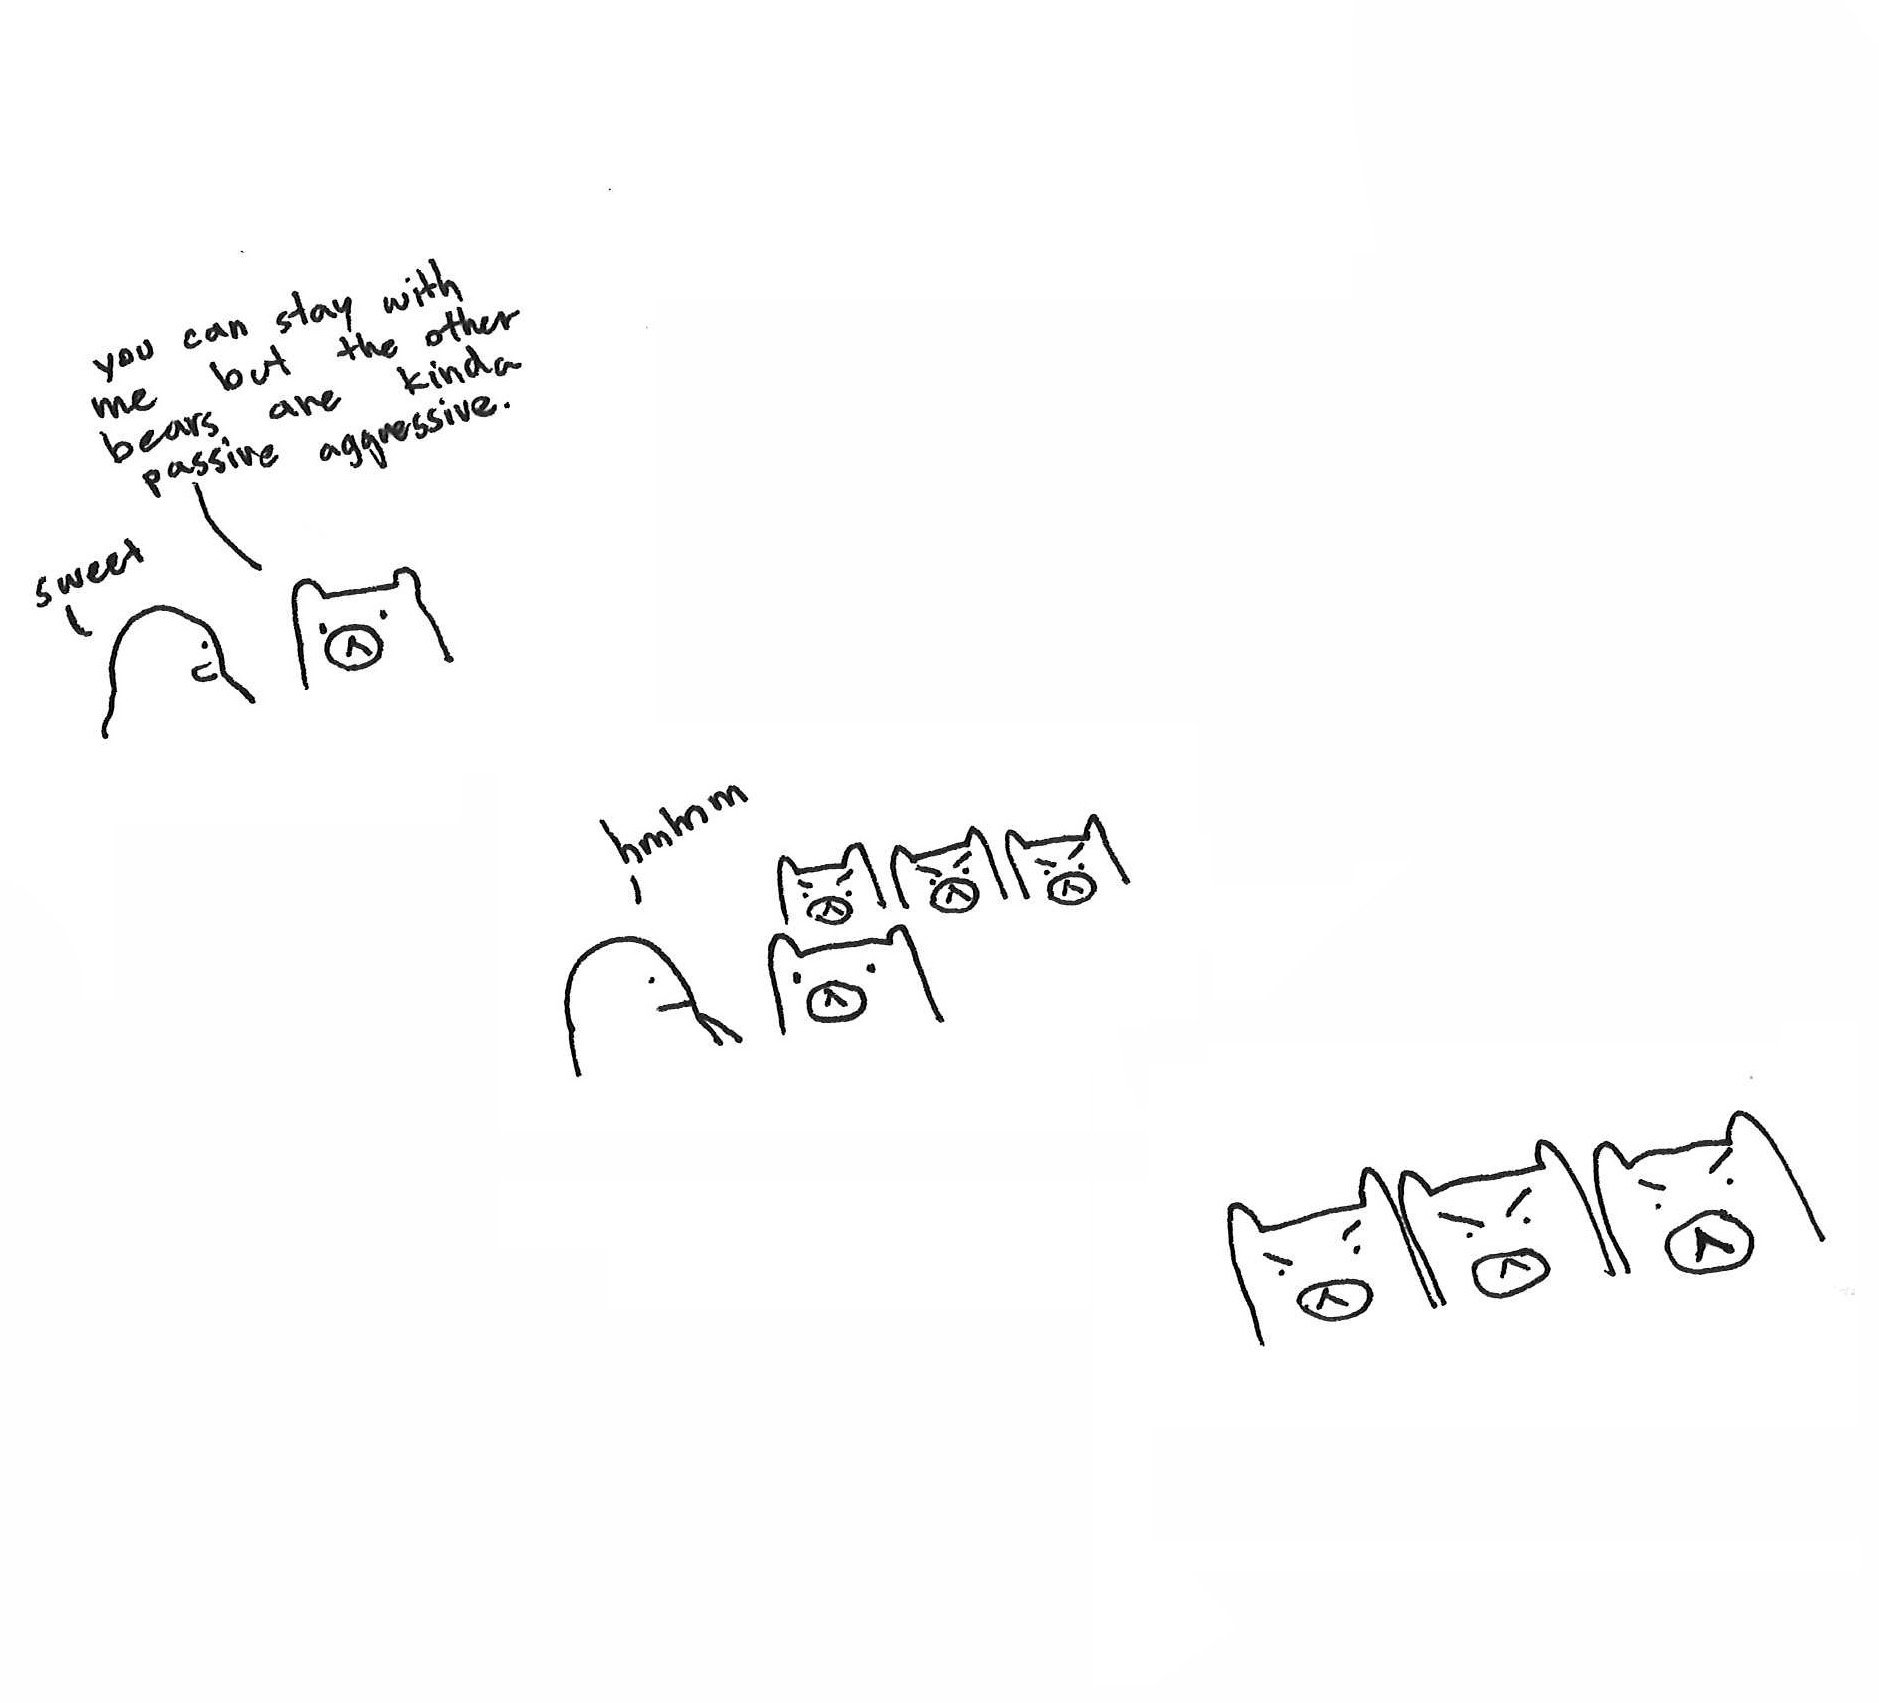 you can stay with
me but the other
bears are kinda
passive aggressive.
sweet
hmhmm